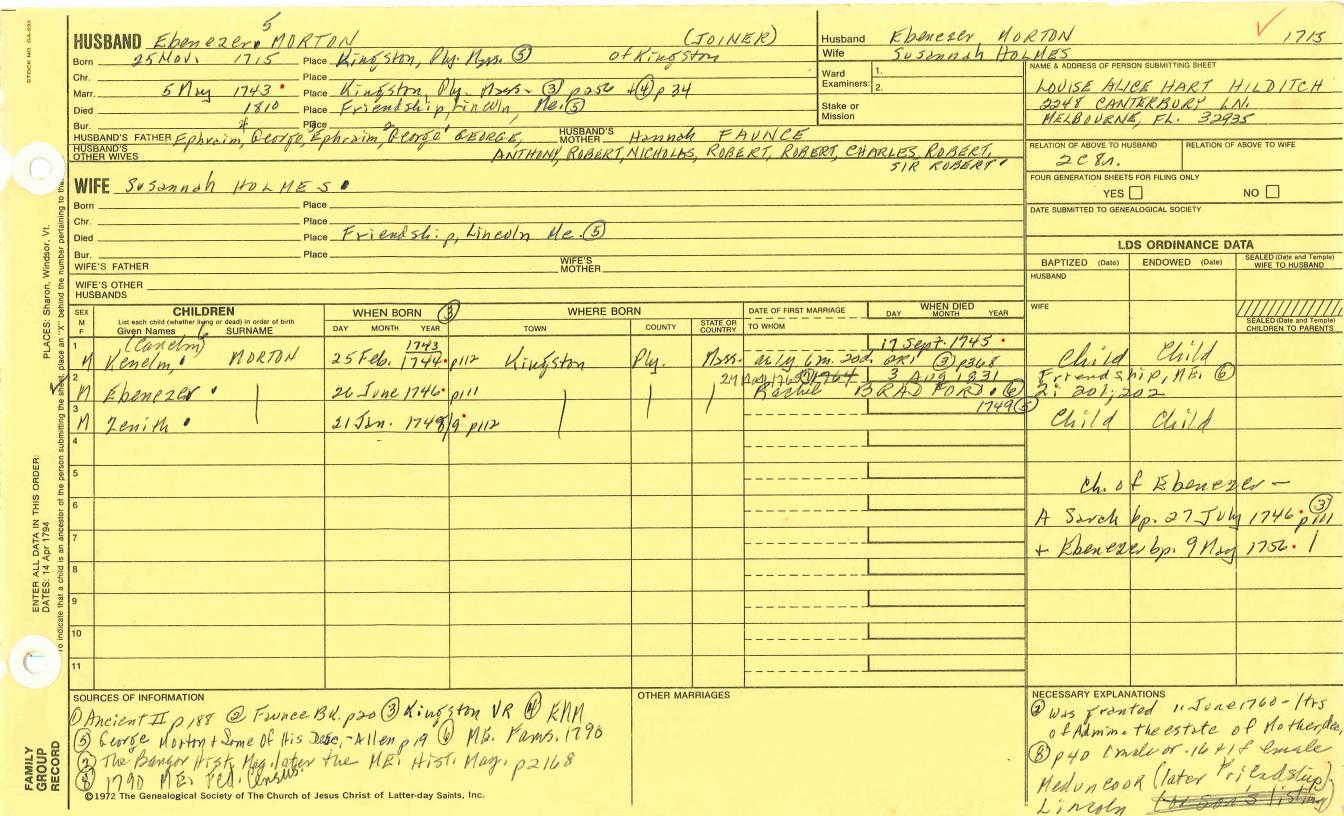 STOCK NO. GA-033
PLACES: Sharon, Windsor, Vt.
ENTER ALL DATA IN THIS ORDER:
DATES: 14 Apr 1794
To indicate that a child is an ancestor of the person submitting the sheet, place an "X" behind the number pertaining to the
FAMILY GROUP RECORD
5
HUSBAND Ebenezer MORTON (JOINER)
Born 25 Nov. 1715 Place Kingston, Ply. Mass. ⑤ of Kingston
Chr. Place
Marr. 5 May 1743 Place Kingston, Ply. Mass- ③ p256 +④ p34
Died 1810 Place Friendship, Lincoln, Me. ⑤
Bur. Place
HUSBAND'S FATHER Ephraim, George, Ephraim, George, GEORGE, HUSBAND'S MOTHER Hannah FAUNCE
HUSBAND'S OTHER WIVES ANTHONY, ROBERT, NICHOLAS, ROBERT, ROBERT, CHARLES, ROBERT,
SIR ROBERT
WIFE Susannah HOLMES
Born Place
Chr. Place
Died Place Friendship, Lincoln Me. ⑤
Bur. Place
WIFE'S FATHER WIFE'S MOTHER
WIFE'S OTHER HUSBANDS
Husband Ebenezer MORTON 1715
Wife Susannah HOLMES
Ward Examiners: 1. 2.
Stake or Mission
NAME & ADDRESS OF PERSON SUBMITTING SHEET
LOUISE ALICE HART HILDITCH
2248 CANTERBURY LN.
MELBOURNE, FL. 32935
RELATION OF ABOVE TO HUSBAND RELATION OF ABOVE TO WIFE
2C8r.
FOUR GENERATION SHEETS FOR FILING ONLY
YES NO
DATE SUBMITTED TO GENEALOGICAL SOCIETY
LDS ORDINANCE DATA
BAPTIZED (Date) ENDOWED (Date) SEALED (Date and Temple) WIFE TO HUSBAND
HUSBAND
WIFE
SEALED (Date and Temple) CHILDREN TO PARENTS
SEX M F CHILDREN WHEN BORN ③ WHERE BORN DATE OF FIRST MARRIAGE WHEN DIED
List each child (whether living or dead) in order of birth
Given Names SURNAME DAY MONTH YEAR TOWN COUNTY STATE OR COUNTRY TO WHOM DAY MONTH YEAR
1 (Canelm) 1743 17 Sept. 1745
M Kenelm, MORTON 25 Feb. 1744 p112 Kingston Ply. Mass. ③ p368 Child Child
2 1764 3 Aug 1831 Friendship, ME. ⑥
M Ebenezer 26 June 1746 p111 Rachel BRADFORD ⑥ 2: 201; 202
3 1749 ⑤
M Zenith 21 Jan. 1748/9 p112 Child Child
4
5
6
7
8
9
10
11
Ch. of Ebenezer -
A Sarah bp. 27 July 1746 p111 ③
+ Ebenezer bp. 9 May 1756
SOURCES OF INFORMATION
① Ancient II p188 ② Faunce Bk. p20 ③ Kingston VR ④
⑤ George Morton + Some Of His Desc.-Allen p19 ⑥ ME. Fams. 1790
⑦ The Bangor Hist. Mag. later the ME. Hist. Mag. p2168
⑧ 1790 ME. Fed. Census.
©1972 The Genealogical Society of The Church of Jesus Christ of Latter-day Saints, Inc.
OTHER MARRIAGES
NECESSARY EXPLANATIONS
② Was granted 11 June 1760 - ltrs
of Admin. the estate of Mother, dec.
⑧ p40 1 male or. 16 + 1 female
Meduncook (later Friendship)
Lincoln